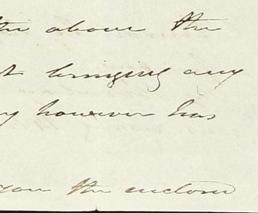 the above the
bringing any
however has
you the enclosed